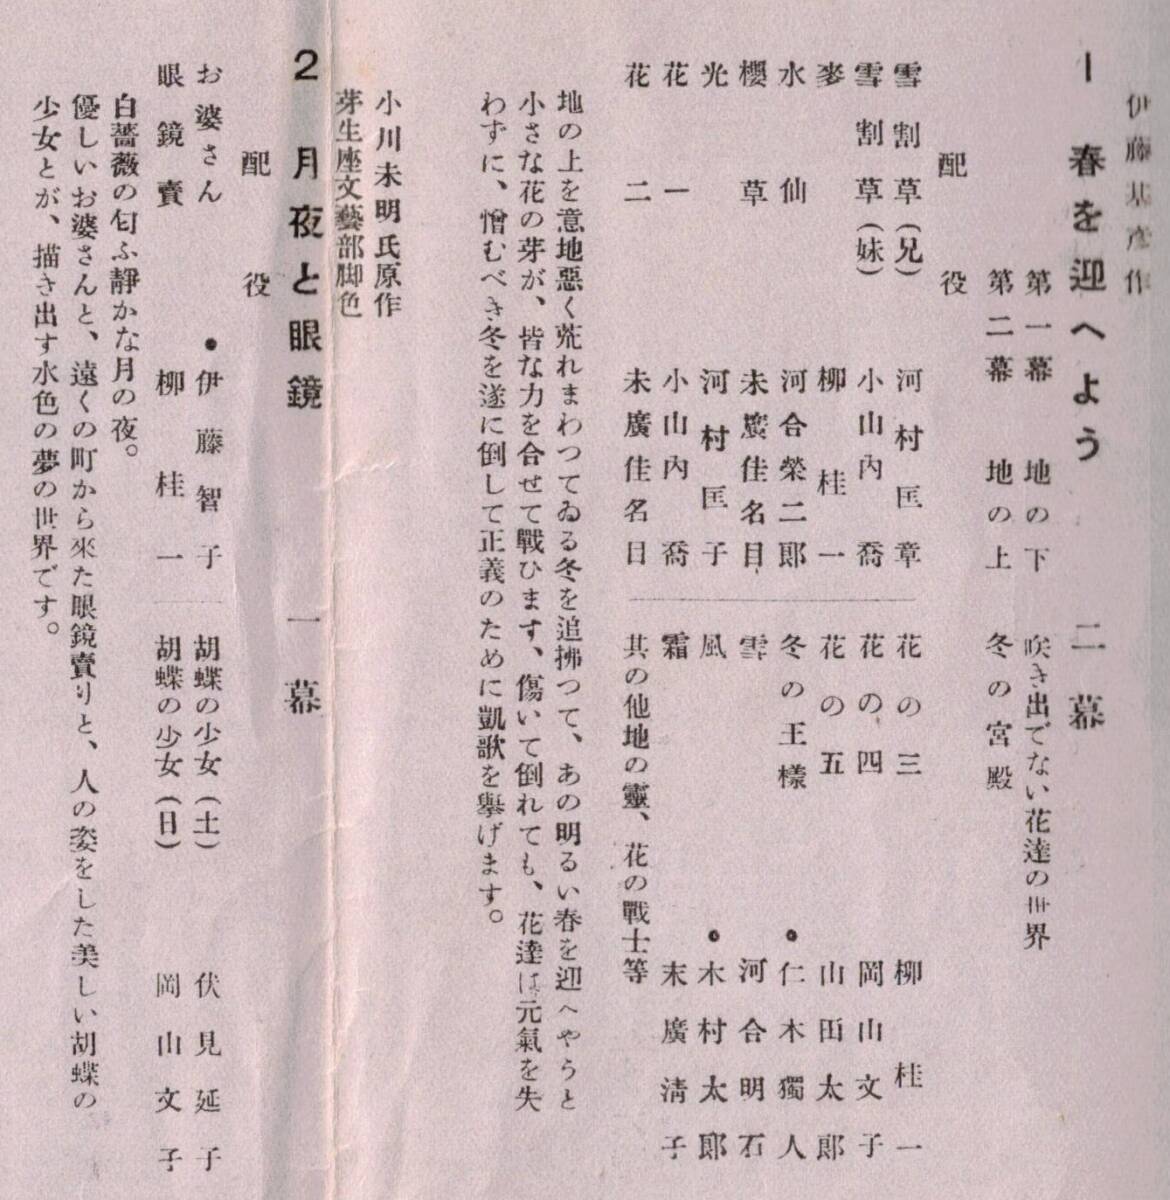 伊藤基彦作
1 春を迎へよう 二幕
第一幕 地の下 咲き出でない花達の世界
第二幕 地の上 冬の宮殿
配役
雪割草(兄) 河村匡章
雪割草(妹) 小山内喬
麥 柳桂一
水仙 河合榮二郎
櫻草 末廣佳名目
光 河村匡子
花一 小山内喬
花二 末廣佳名目
花の三 柳桂一
花の四 岡山文子
花の五 山田太郎
冬の王樣 •仁木獨人
雪 河合明石
風 •木村太郎
霜 末廣淸子
其の他地の靈、花の戰士等
地の上を意地惡く荒れまわつてゐる冬を追拂つて、あの明るい春を迎へやうと
小さな花の芽が、皆な力を合せて戰ひます、傷いて倒れても、花達は元氣を失
わずに、憎むべき冬を遂に倒して正義のために凱歌を擧げます。
小川未明氏原作
芽生座文藝部脚色
2 月夜と眼鏡 一幕
配役
お婆さん •伊藤智子
眼鏡賣 柳桂一
胡蝶の少女(土) 伏見延子
胡蝶の少女(日) 岡山文子
白薔薇の匂ふ靜かな月の夜。
優しいお婆さんと、遠くの町から來た眼鏡賣りと、人の姿をした美しい胡蝶の
少女とが、描き出す水色の夢の世界です。